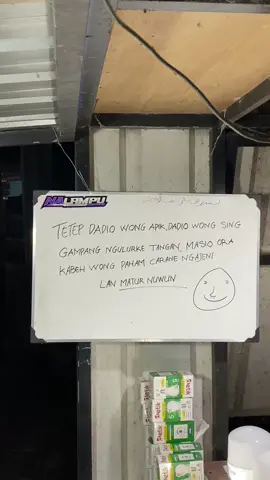 LAMPU
TETEP DADIO WONG APIK, DADIO WONG SING
GAMPANG NGULURKE TANGAN, MASIO ORA
KABEH WONG PAHAM CARANE NGAJENI
LAN MATUR NUWUN